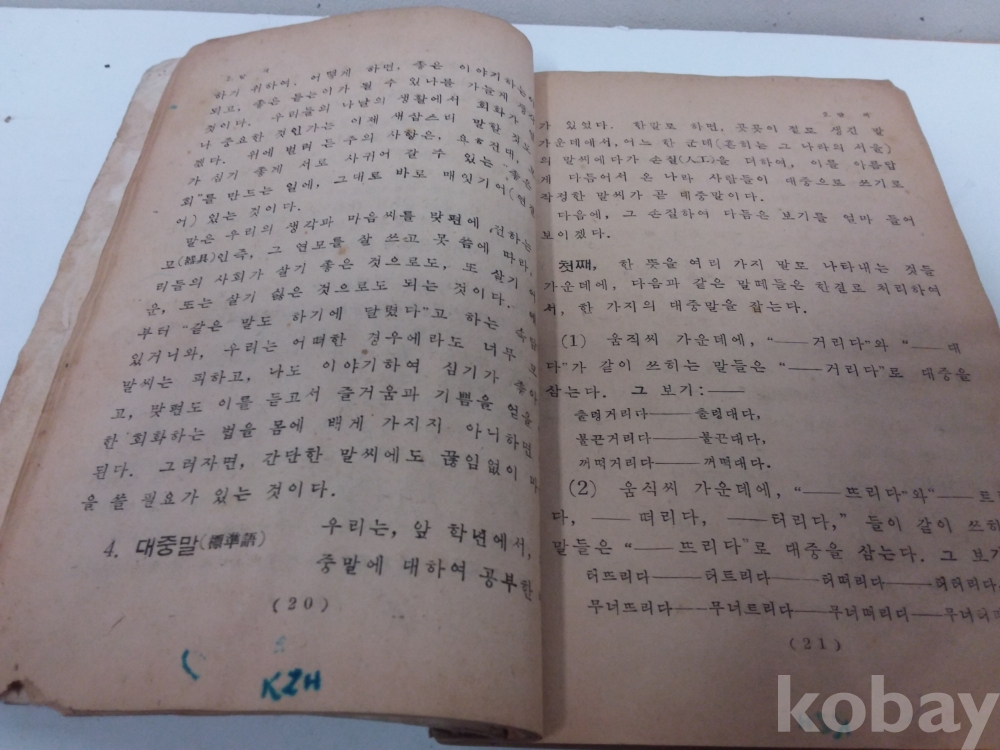 하기 위하여, 어떻게 하면, 좋은 이야기하는
되고, 좋은 듣는이가 될 수 있나를 가늘게
것이다. 우리들의 나날의 생활에서 회화가
나 중요한 것인가는 이제 새삽쓰리 말할 것도
겠다. 위에 벌려 든 주의 사항은, 요컨대,
가 심기 좋게 서로 사귀어 갈 수 있는, 좋은
회"를 만드는 일에, 그대로 바로 매잇기어
어) 있는 것이다.
말은 우리의 생각과 마음씨를 맞편에 전하는
모(器具)인즉, 그 연모를 잘 쓰고 못 씀에 따라,
리들의 사회가 살기 좋은 것으로도, 또 살기
운, 또는 살기 싫은 것으로도 되는 것이다.
부터 "같은 말도 하기에 달렸다"고 하는
있거니와, 우리는 어떠한 경우에라도 너무
말씨는 피하고, 나도 이야기하여 심기가 좋아
고, 맞편도 이를 듣고서 즐거움과 기쁨을 얻을
한 회화하는 법을 몸에 백게 가지지 아니하면
된다. 그러자면, 간단한 말씨에도 끊임없이 마
을 쓸 필요가 있는 것이다.
4. 대중말(標準語) 우리는, 앞 학년에서,
중말에 대하여 공부한
(20)
KZH
가 있었다. 한말로 하면, 곳곳이 절로 생긴 말
가운데에서, 어느 한 군데(흔히는 그 나라의 서울)
의 말씨에다가 손질(人工)을 더하여, 이를 아름답
게 다듬어서 온 나라 사람들이 대중으로 쓰기로
작정한 말씨가 곧 대중말이다.
다음에, 그 손질하여 다듬은 보기를 얼마 들어
보이겠다.
첫째, 한 뜻을 여러 가지 말로 나타내는 것들
가운데에, 다음과 같은 말떼들은 한결로 처리하여
서, 한 가지의 대중말을 잡는다.
(1) 움직씨 가운데에, "——거리다"와 "——대
다"가 같이 쓰히는 말들은 "——거리다"로 대중을
삼는다. 그 보기:——
출렁거리다——출렁대다,
물끈거리다——물끈대다,
꺼떡거리다——꺼떡대다.
(2) 움직씨 가운데에, "——뜨리다"와 "——트
다, ——떠리다, ——터리다," 들이 같이 쓰히
말들은 "——뜨리다"로 대중을 삼는다. 그 보기
터뜨리다——터트리다——터떠리다——터터리다
무너뜨리다——무너트리다——무너떠리다——무너터리
(21)
kobay